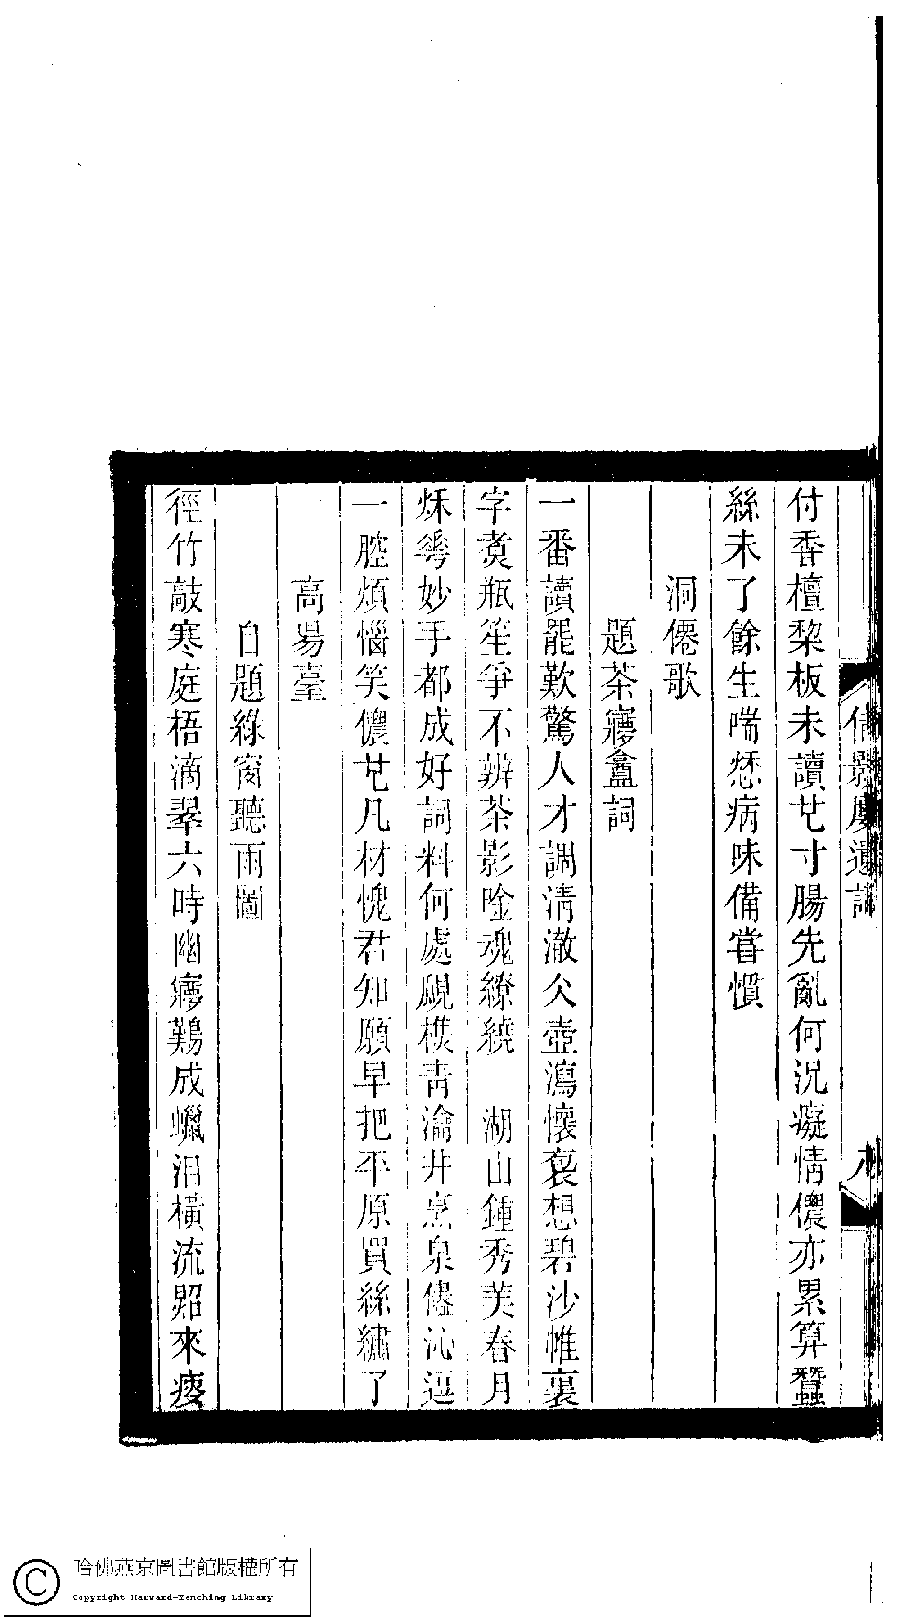 付香檀棃板未讀廿寸腸先亂何況癡情儂亦累算蠶
絲未了餘生喘恁病味備甞慣
洞僊歌
題茶寱盦詞
一番讀罷歎驚人才調清澈仌壺瀉懷褱想碧沙帷裏
字煑瓶笙爭不辨茶影唫魂繚繞　湖山鍾秀芙春月
秌䔢妙手都成好詞料何處覷樵青瀹井烹泉僊沁逗
一腔煩惱笑儂廿凡材愧君知願早把平原買絲繡了
高昜臺
自題綠窗聽雨圖
徑竹敲寒庭梧滴翠六時幽寱難成蠟泪橫流照來瘦
倩影廔遺詞
八
哈佛燕京圖書館版權所有
Copyright Harvard-Yenching Library